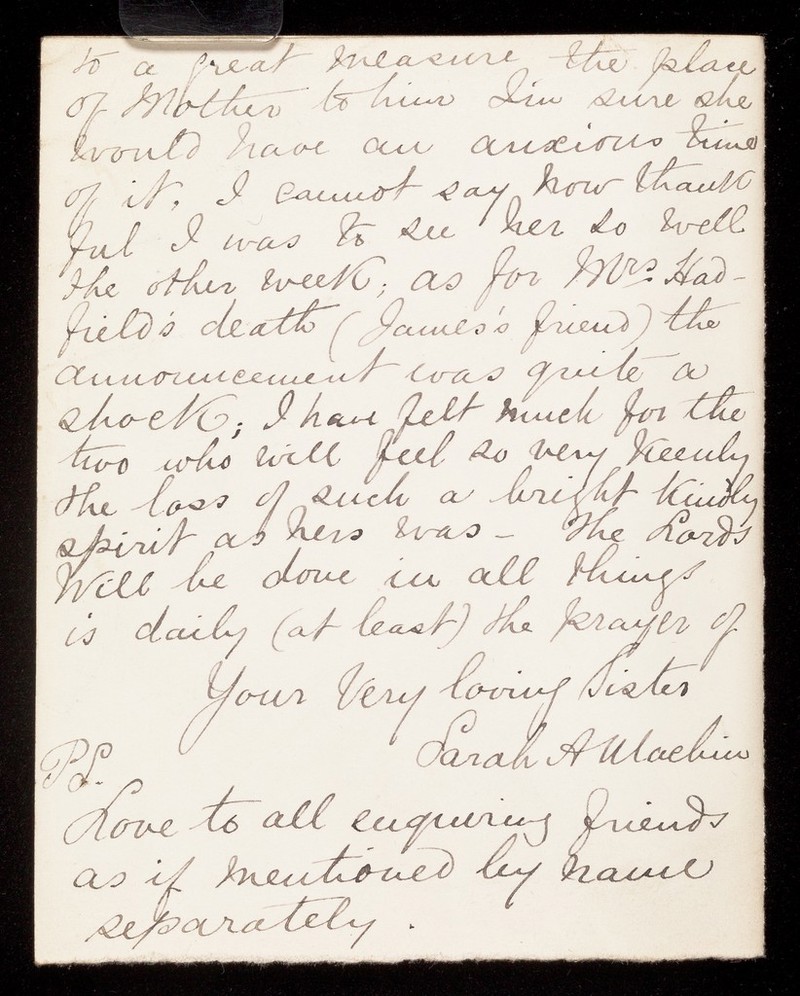 to a great measure the place
of Mother to him I'm sure she
would have an anxious time
of it. I cannot say how thank
ful I was to see her so well
the other week; as for Mrs. Had-
field's death (James's friend) the
announcement was quite a
shock; I have felt much for the
two who will feel so very keenly
the loss of such a bright kindly
spirit as hers was - The Lords
Will be done in all things
is daily (at least) the prayer of
Your Very loving Sister
Sarah A Machin
PS.
Love to all enquiring friends
as if mentioned by name
separately.